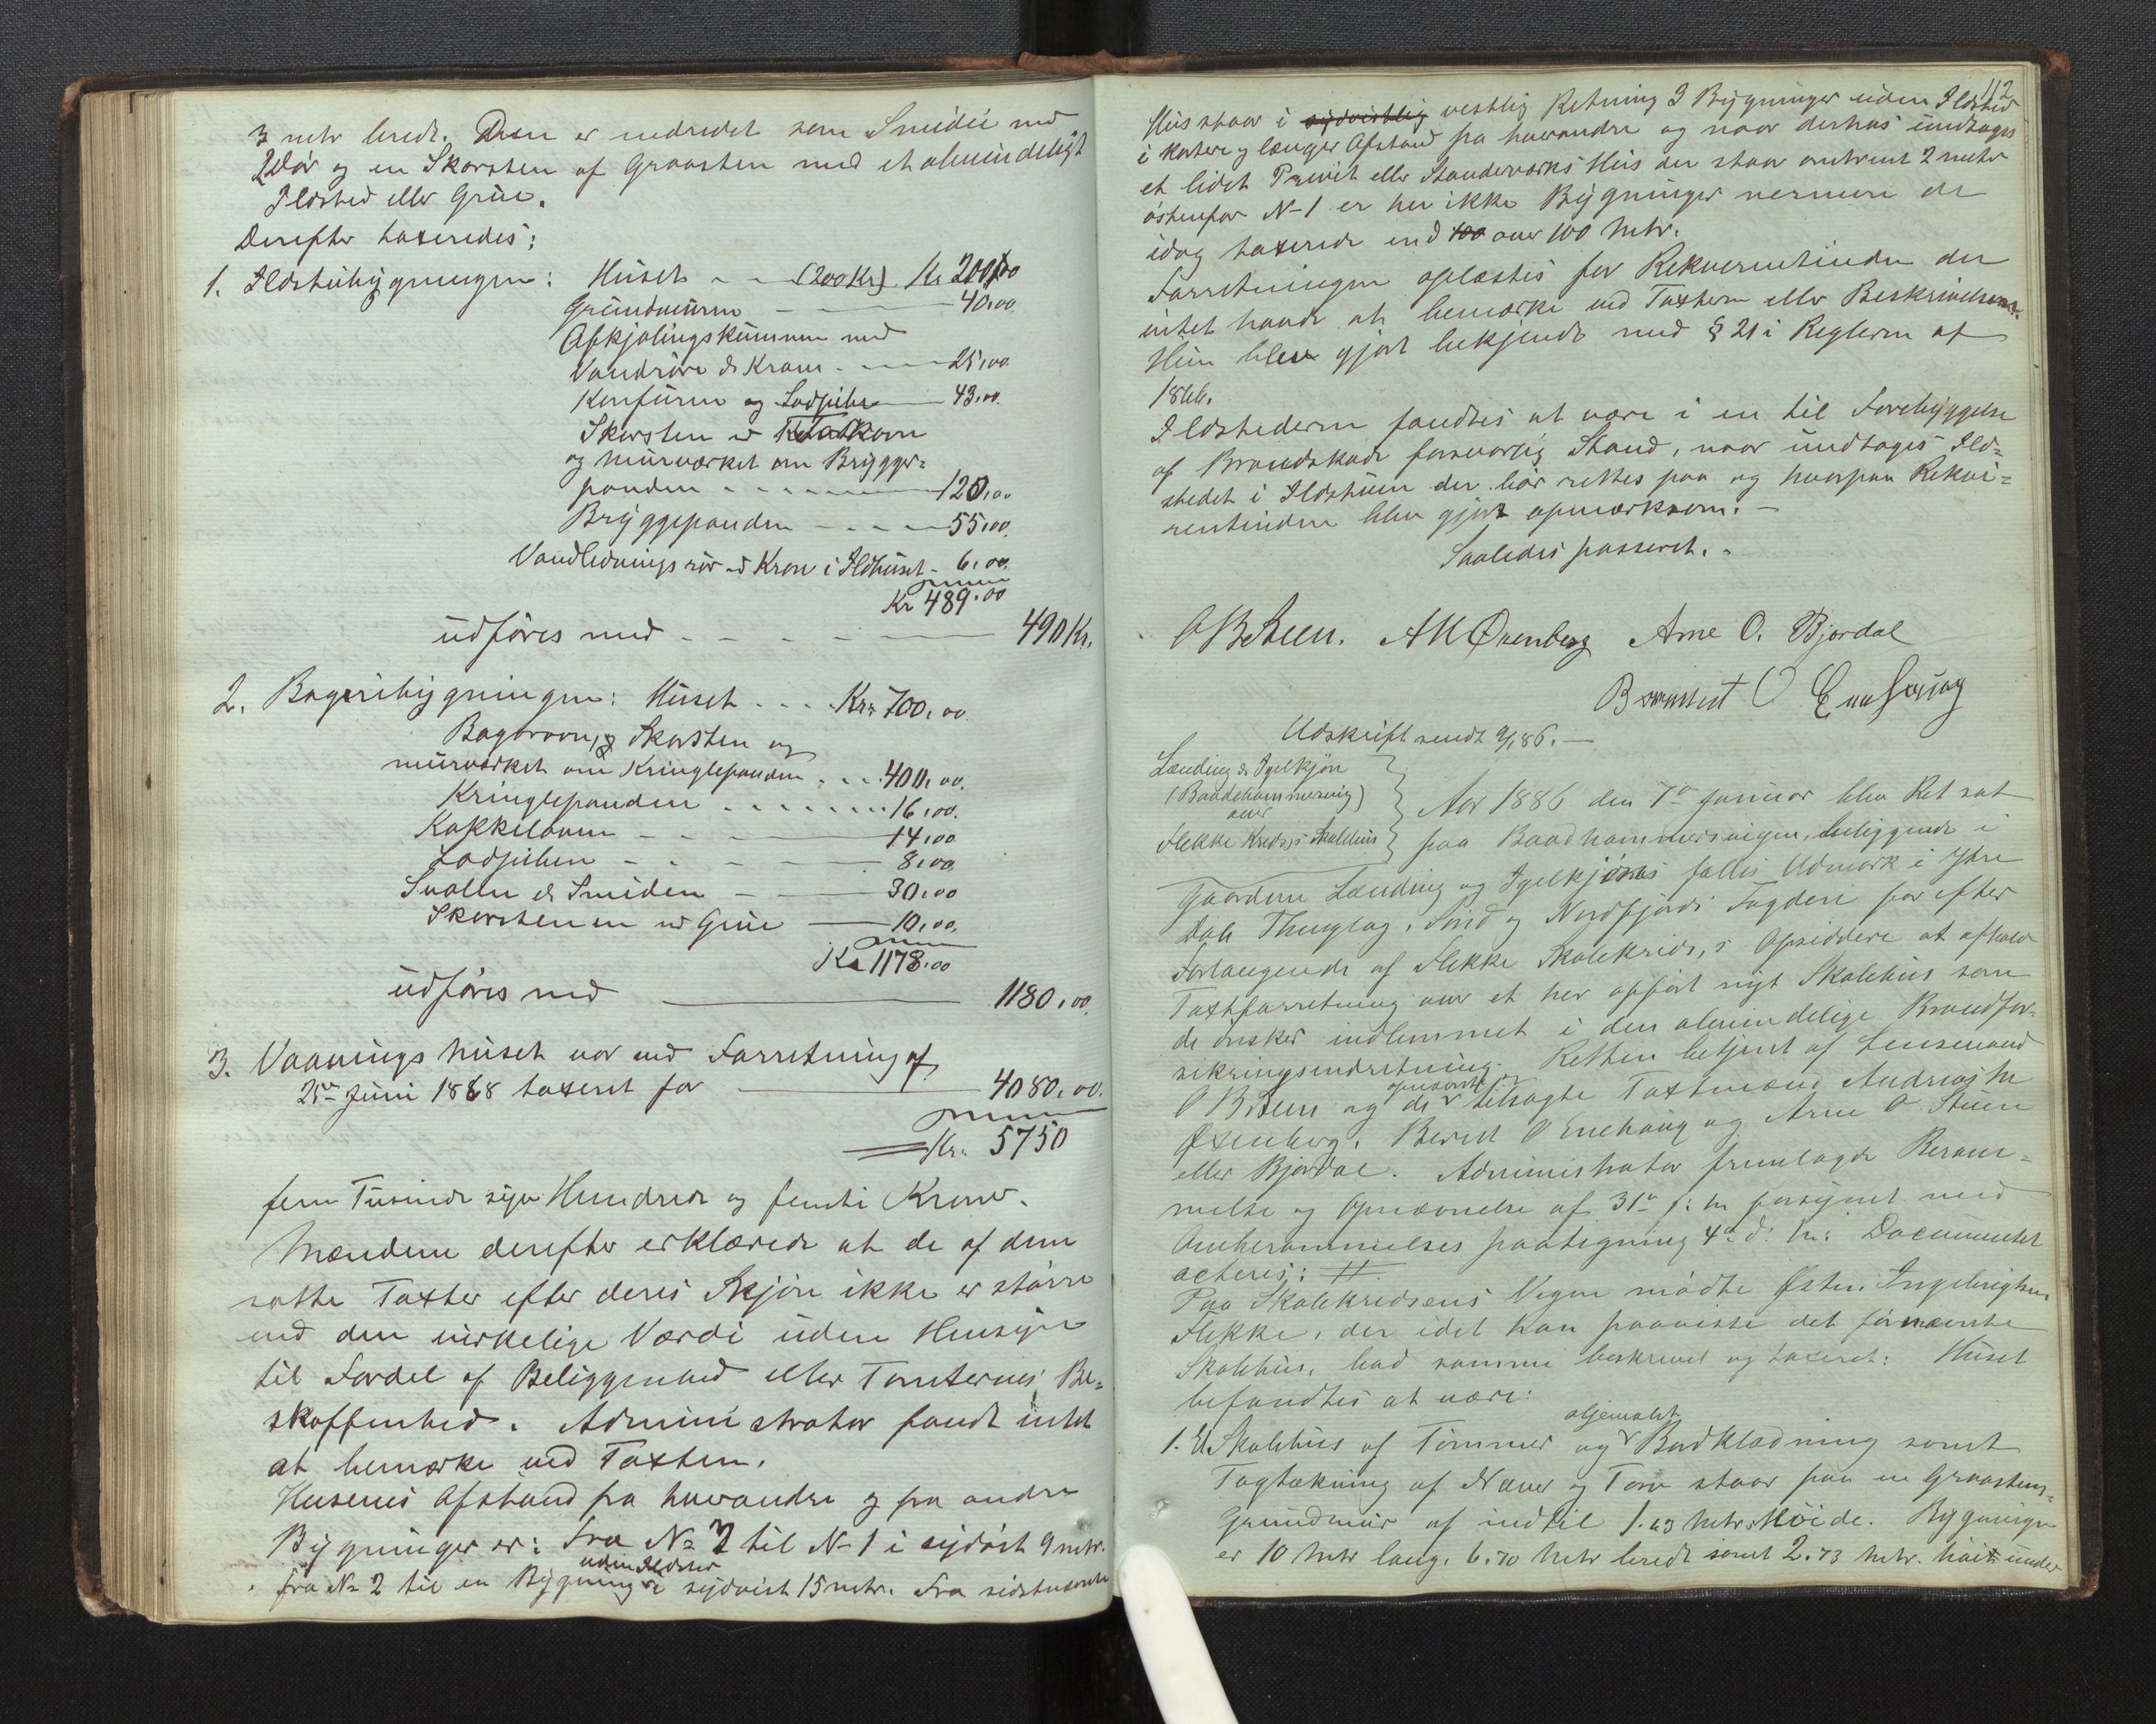 3 metr bredt. Den er indredet som Smidie med
2 Dör og en Skorsten af Graasten med et almindeligt
Ildsted eller Grue.
Derefter taxeredes:
1. Ildstubygningen: Huset - - (200 Kr) Kr 200,00
Grundmuren - - 40,00.
Afkjølingskummen med
Vandrör & Kran - - 25,00.
Komfuren og Lodpiben - 43,00.
Skorsten
og Murværket om Brygge=
panden - - - 120,00
Bryggepanden - - - 55,00.
Vandledningsrör & Kran i Ildhuset - 6,00.
Kr 489.00
udföres med - - - - 490 Kr.
2. Bageribygningen: Huset . . . Kr 700,00.
Bagerovn, Skorsten og
murværket om Kringlepanden . . . 400,00.
Kringlepanden . . . . . . . 16,00.
Kakkelovnen - - - 14,00
Lodpiben - - - 8,00
Svalen & Smiden - - 30,00
Skorstenen & Grue - 10,00.
Kr 1178,00
udföres med - 1180,00.
3. Vaaningshuset var ved Forretning af
25de Juni 1868 taxeret for - 4080,00.
Kr. 5750
fem Tusinde syv Hundrede og femti Kroner.
Mændene derefter erklærede at de af dem
satte Taxter efter deres Skjön ikke er större
end den virkelige Værdi uden Hensyn
til Fordel af Beliggenhed eller Tomternes Be=
skaffenhed. Administrator fandt intet
at bemærke ved Taxten.
Husenes Afstand fra hverandre og fra andre
Bygninger er: Fra No 2 til No 1 i sydöst 9 metr.
fra No 2 til en Bygning uden Ildsted i sydvest 15 metr. Fra sidstnævnte
112
Hus staar i sydvestlig vestlig Retning 3 Bygninger uden Ildsted
i kortere og længer Afstand fra hverandre og naar derhos undtages
et lidet Privet eller Handverks Hus der staar omtrent 2 meter
östenfor No 1 er her ikke Bygninger nermere de
idag taxerede end 100 over 100 Metr.
Forretningen oplæstes for Rekvirentinden der
intet havde at bemærke ved Taxterne eller Beskrivelsen.
Hun blev gjort bekjendt med § 21 i Reglerne af
1866.
Ildstederne fandtes at være i en til Forebyggelse
af Brandskade forsvarlig Stand, naar undtages Ild=
stedet i Ildstuen der bör rettes paa og hvorpaa Rekvi=
rentinden blev gjort opmærksom. -
Saaledes passeret. -
O B Steen. A M Øxenberg Arne O. Bjordal
Berendt O Enehaug
Udskrift sendt 9/1 86. -
Lending & Igelkjön
(Baadehammervig)
over
Flekke Kredses Skolehus
Aar 1886 den 7de Januar blev Ret sat
paa Baadhammervigen, beliggende i
Gaardene Lending og Igelkjöns fælles Udmark i Ytre
Dale Thinglag, Sönd og Nordfjords Fogderi for efter
Forlangende af Flekke Skolekreds,s Opsiddere at afholde
Taxtforretning over et her opfört nyt Skolehus som
de önsker indlemmet i den almindelige Brandfor=
sikringsindretning. Retten betjent af Lensmand
O B Steen og de opnævnte tilsagte Taxtmænd Andreas M
Øxenberg, Berent O Enehaug og Arne O Steen
eller Bjordal. Administrator fremlagde Beram=
melse og Opnævnelse af 31te f: M forsynet med
Omberammelses paategning 4de d: M: Documentet
acteres: H.
Paa Skolekredsens Vegne mödte Østen Ingebrigtsen
Flekke, der idet han paaviste det fornævnte
Skolehus, bad samme beskrevet og taxeret: Huset
befandtes at være:
1. Et Skolehus af Tömmer og oljemalet Bordklædning samt
Tagtækning af Næver og Torv staar paa en Graastens=
Grundmur af indtil 1.63 Metrs Höide. Bygningen
er 10 Metr lang. 6.70 Metr bredt samt 2.73 Metr. höit under